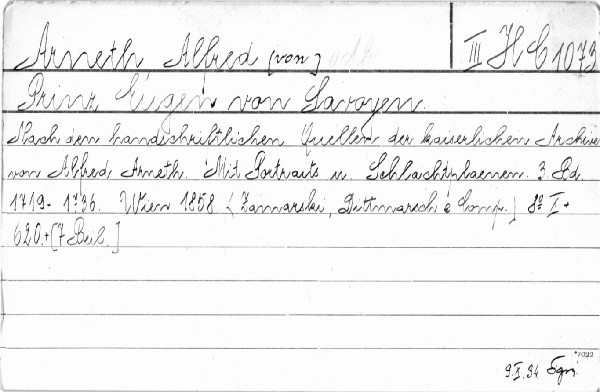 Arneth Alfred (von) III H C 1073
Prinz Eugen von Savoyen.
Nach den handschriftlichen Quellen der kaiserlichen Archive
von Alfred Arneth. Mit Portraits u. Schlachtplaenen. 3. Bd.
1719-1736. Wien 1858 (Zamarski, Dittmarsch & Comp.) 8º I+
620.+[7 Beil.]
*7022
9.X.34